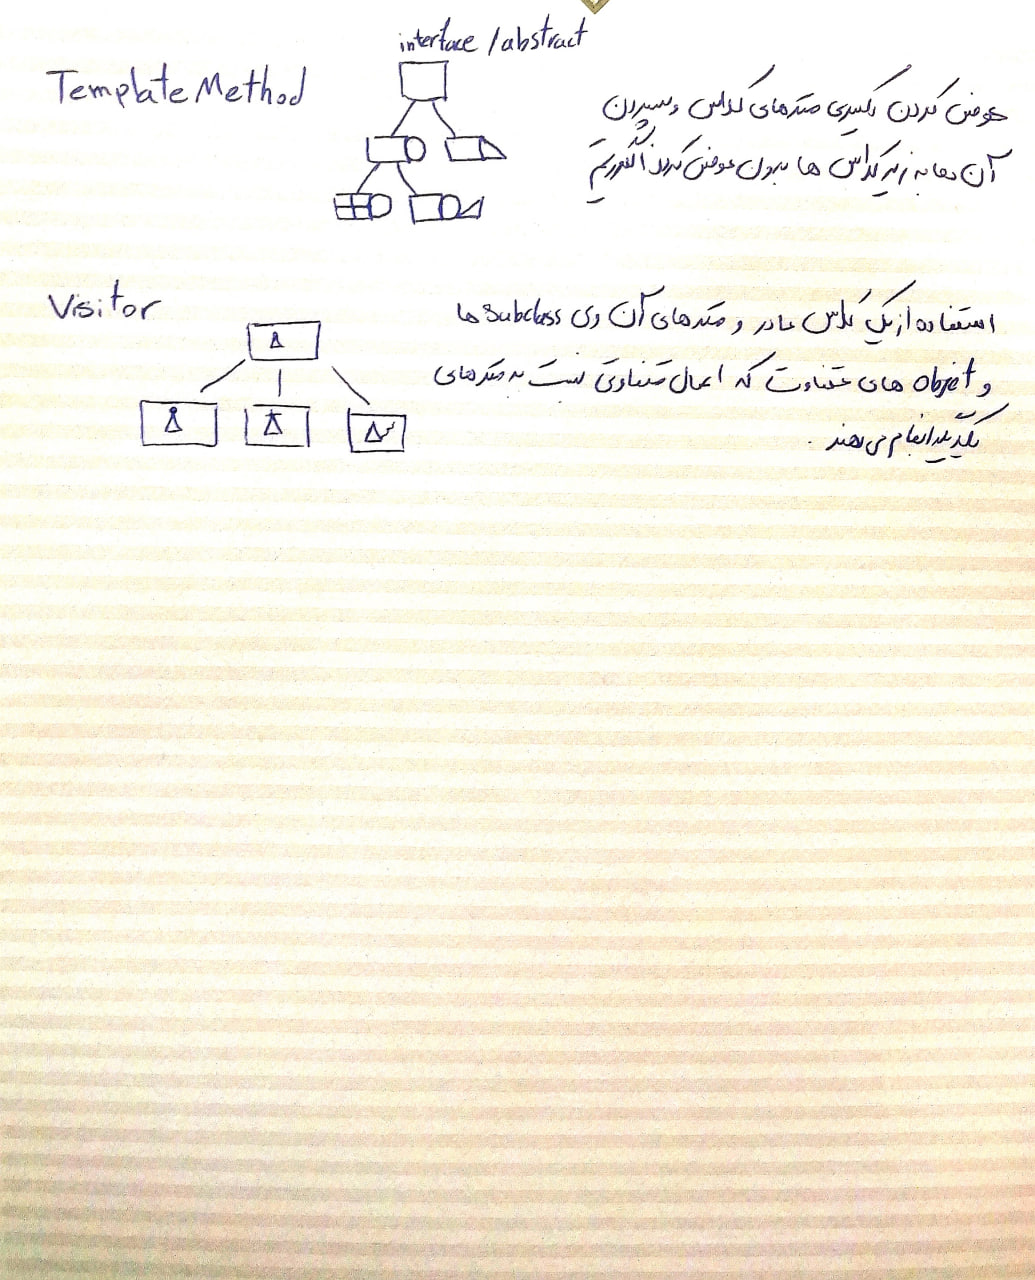 interface / abstract
Template Method
عوض کردن متدهای کلاس و سپردن
آن ها به زیر کلاس ها بدون عوض کردن الگوریتم
Visitor
استفاده از یک کلاس مادر و متدهای آن روی subclass ها
و object های متفاوت که اعمال متفاوتی نسبت به متدهای
یکدیگر انجام می دهند.